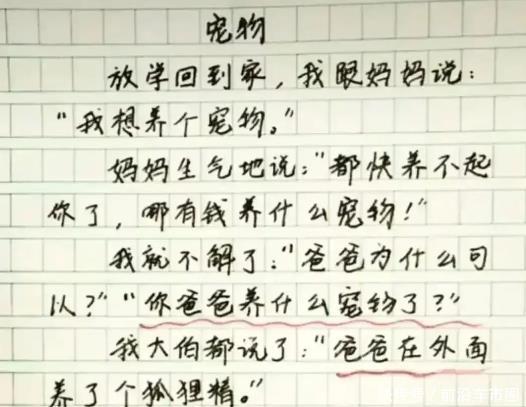 宠物
放学回到家，我跟妈妈说：
“我想养个宠物。”
妈妈生气地说：“都快养不起
你了，哪有钱养什么宠物！”
我就不解了：“爸爸为什么可
以？”“你爸爸养什么宠物了？”
我大伯都说了：“爸爸在外面
养了个狐狸精。”
前沿车市圈